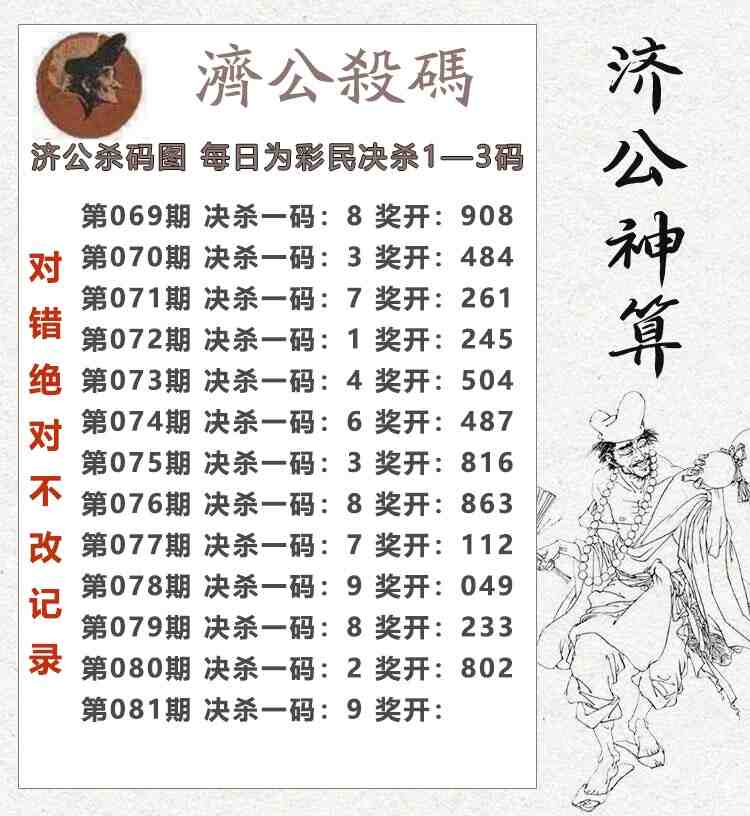 濟公殺碼
济公杀码图 每日为彩民决杀1—3码
第069期 决杀一码：8 奖开：908
第070期 决杀一码：3 奖开：484
第071期 决杀一码：7 奖开：261
第072期 决杀一码：1 奖开：245
第073期 决杀一码：4 奖开：504
第074期 决杀一码：6 奖开：487
第075期 决杀一码：3 奖开：816
第076期 决杀一码：8 奖开：863
第077期 决杀一码：7 奖开：112
第078期 决杀一码：9 奖开：049
第079期 决杀一码：8 奖开：233
第080期 决杀一码：2 奖开：802
第081期 决杀一码：9 奖开：
对错绝对不改记录
济公神算